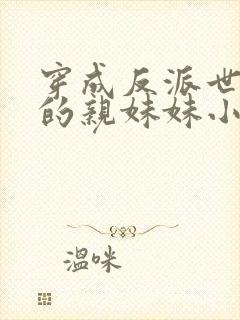 穿成反派世
的亲妹妹小
温咪